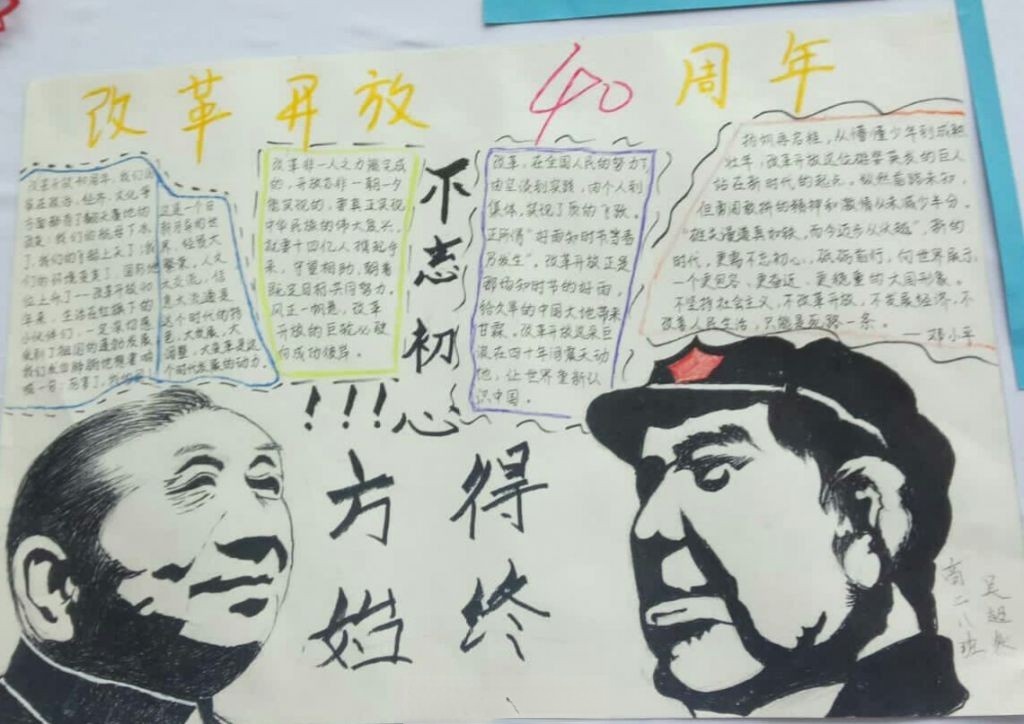 改革开放 40 周年
改革开放40周年，我们国
家在政治、经济、文化等
方面都有了翻天覆地的
改变：我们的航母下水
了，我们的飞船上天了，我
们的环境变美了，国际地
位上升了——改革开放40
年来，生活在红旗下的
小伙伴们，一定深切感
受到了祖国的蓬勃发展
这是一个日
新月异的世
界，经贸大
繁荣，人文
大交流，信
息大流通是
这个时代的特
色，大发展，大
调整，大变革是这
个时代发展的动力。
改革非一人之力能完成
的，开放亦非一朝一夕
能实现的，要真正实现
中华民族的伟大复兴，
就要十四亿人携起手
来，守望相助，朝着
既定目标共同努力。
风正一帆悬，改革
开放的巨轮必驶
向成功彼岸。
不志初心
!!!
改革，在全国人民的努力下，
由空谈到实践，由个人到
集体，实现了质的飞跃。
正所谓“好雨知时节当春
乃发生”。改革开放正是
那场知时节的好雨，
给久旱的中国大地带来
甘霖。改革开放这朵巨
浪在四十年间震天动
地，让世界重新认
识中国。
扬帆再启程，从懵懂少年到成熟
壮年，改革开放这位雄姿英发的巨人
站在新时代的起点。纵然前路未知，
但勇闯敢拼的精神和激情从未减少半分。
“雄关漫道真如铁，而今迈步从头越”，新的
时代，更需不忘初心，砥砺前行，向世界展示
一个更包容、更奋进、更稳重的大国形象。
不坚持社会主义，不改革开放，不发展经济，不
改善人民生活，只能是死路一条。
——邓小平
方得
始终
高二八班
吴超